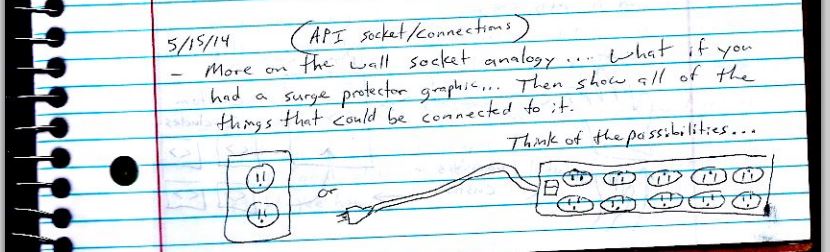 5/15/14
(API socket/connections)
- More on the wall socket analogy... what if you
had a surge protector graphic... Then show all of the
things that could be connected to it.
Think of the possibilities...
or